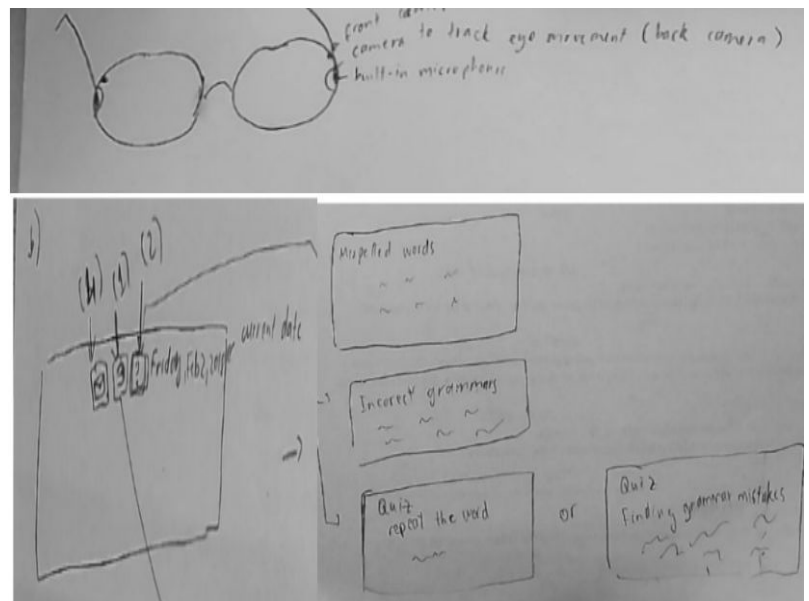 front
camera to track eye movement (back camera)
built-in microphone
b)
(1) (2)
Friday, Feb 2, current date
Misspelled words
Incorect grammers
Quiz
repeat the word
or
Quiz
Finding grammar mistakes